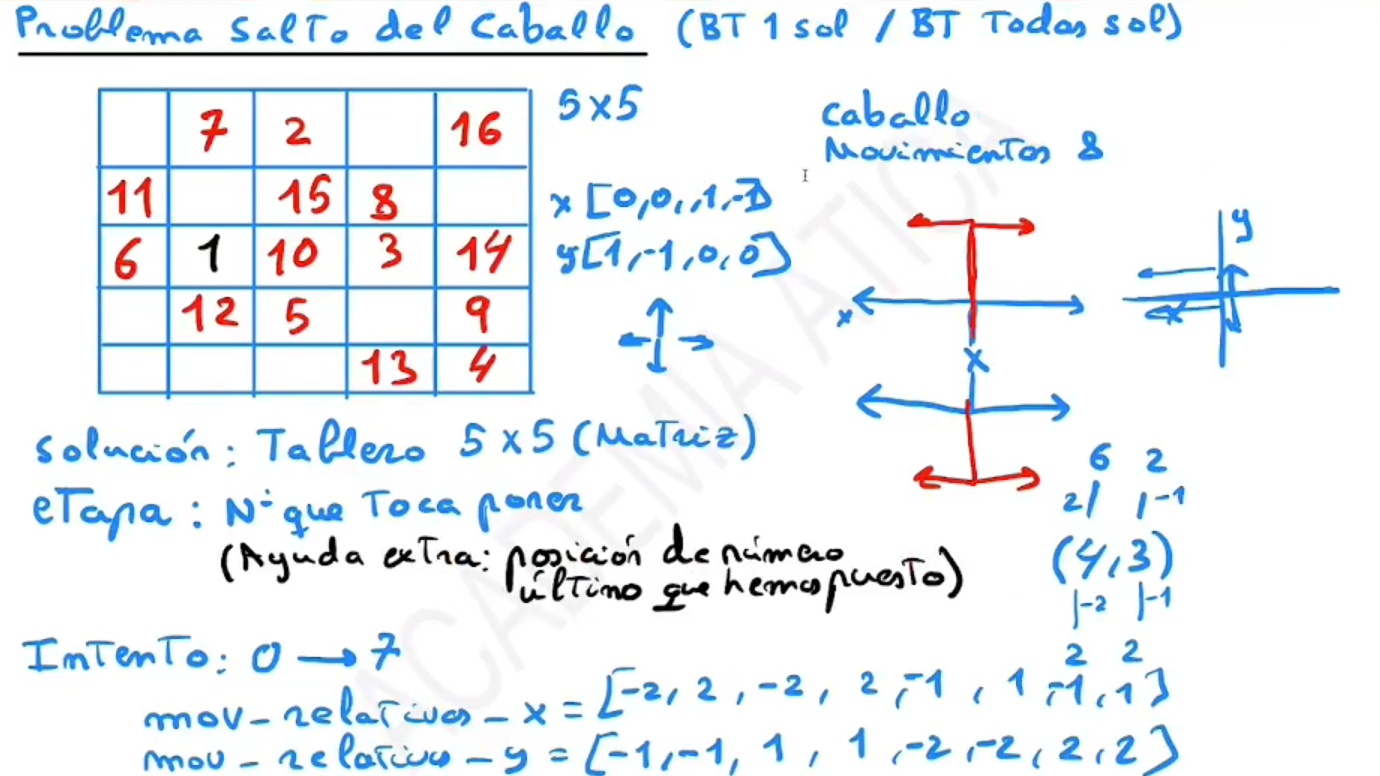 Problema Salto del Caballo (BT 1 sol / BT Todas sol)
7 2 16
11 15 8
6 1 10 3 14
12 5 9
13 4
5x5
x [0,0,,1,-1]
y[1,-1,0,0]
caballo
Movimientos 8
x
x
y
x
solución: Tablero 5x5 (Matriz)
etapa: Nº que toca poner
(Ayuda extra: posición de número
último que hemos puesto)
6 2
2 -1
(4,3)
-2 -1
2 2
Intento: 0 → 7
mov-relativos-x = [-2, 2, -2, 2, -1, 1, -1, 1]
mov-relativos-y = [-1, -1, 1, 1, -2, -2, 2, 2]
ACADEMIA ATICA